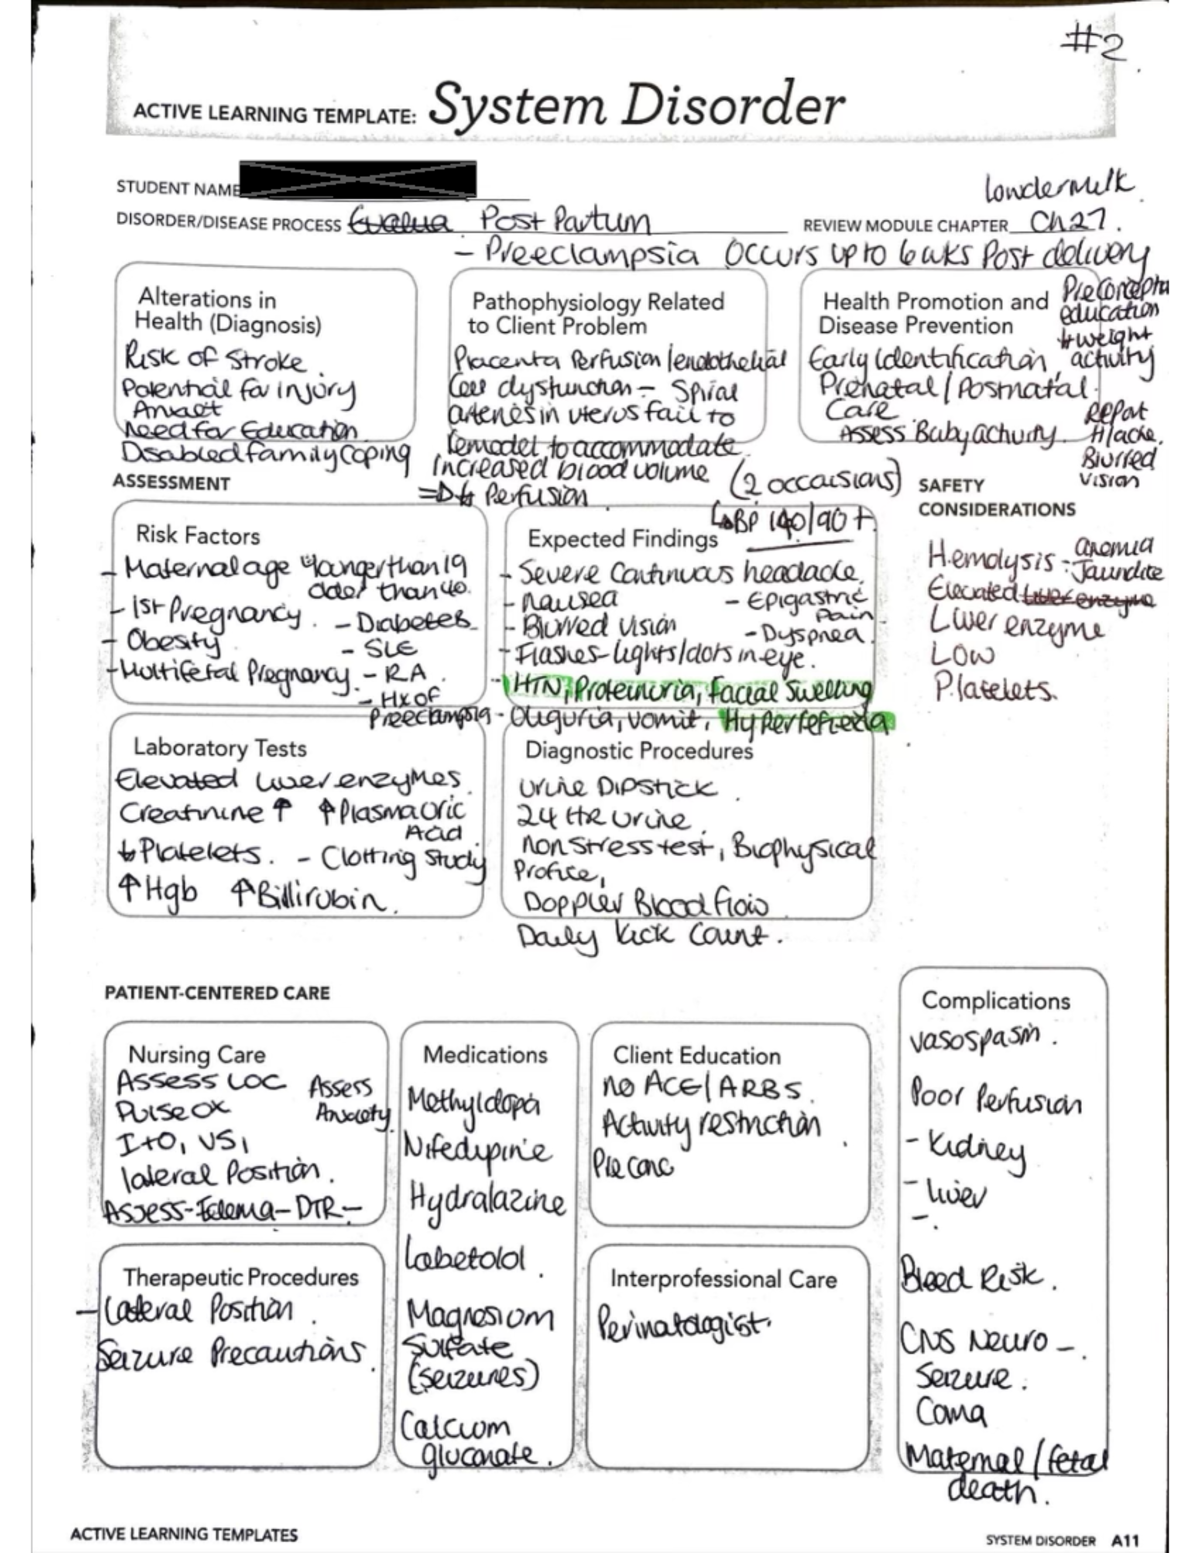 #2
ACTIVE LEARNING TEMPLATE: System Disorder
STUDENT NAME
Lowdermilk
DISORDER/DISEASE PROCESS Post Partum
REVIEW MODULE CHAPTER Ch27.
- Preeclampsia Occurs up to 6 wks Post delivery
Alterations in
Health (Diagnosis)
Risk of Stroke.
Potential for injury
Need for Education
Disabled family Coping
Pathophysiology Related
to Client Problem
Placenta Perfusion/endothelial
Cell dysfunction - Spiral
arteries in uterus fail to
remodel to accommodate
increased blood volume
= ↓ Perfusion
Health Promotion and
Disease Prevention
Early Identification,
Prenatal/Postnatal
Care
Assess Baby activity.
education
weight
activity
Report
H/ache.
Blurred
Vision
ASSESSMENT
Risk Factors
- Maternal age younger than 19
older than 40.
- 1st Pregnancy. - Diabetes
- Obesity - SLE
- Multifetal Pregnancy. - RA
- Hx of
Preeclampsia
(2 occaisions)
↳ BP 140/90 +
Expected Findings
- Severe Continuous headache.
- nausea - Epigastric
Pain
- Blurred vision - Dyspnea
- Flashes-lights/dots in eye.
- HTN, Proteinuria, Facial Swelling
- Oliguria, vomit,
SAFETY
CONSIDERATIONS
Hemolysis - anemia
- Jaundice
Elevated liver enzyme
Liver enzyme
Low
Platelets.
Laboratory Tests
Elevated Liver enzymes
Creatinine ↑ ↑ Plasma Uric
Acid
↓ Platelets. - Clotting Study
↑ Hgb ↑ Billirubin.
Diagnostic Procedures
Urine Dipstick.
24 HR urine.
non Stress test, Biophysical
Profile,
Doppler Blood flow
Daily kick Count.
PATIENT-CENTERED CARE
Nursing Care
Assess LOC Assess
Pulse OX Anxiety
I+O, VS,
lateral Position.
Assess-Edema-DTR-
Medications
Methyldopa
Nifedipine
Hydralazine
Labetolol.
Magnesium
Sulfate
(seizures)
Calcium
gluconate.
Client Education
NO ACE/ARBS.
Activity restriction.
Pre conc
Complications
vasospasm.
Poor Perfusion
- Kidney
- liver
-.
Bleed Risk.
CNS Neuro -.
Seizure.
Coma
Maternal/fetal
death.
Therapeutic Procedures
- Lateral Position.
Seizure Precautions.
Interprofessional Care
Perinatologist.
ACTIVE LEARNING TEMPLATES
SYSTEM DISORDER A11